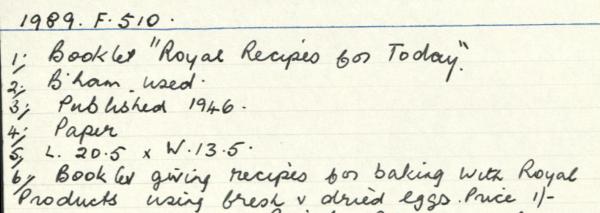 1989. F. 510.
1; Booklet "Royal Recipes for Today".
2; B'ham. used.
3; Published 1946.
4; Paper
5; L. 20.5 x W. 13.5.
6; Booklet giving recipes for baking with Royal
Products using fresh & dried eggs. Price 1/-